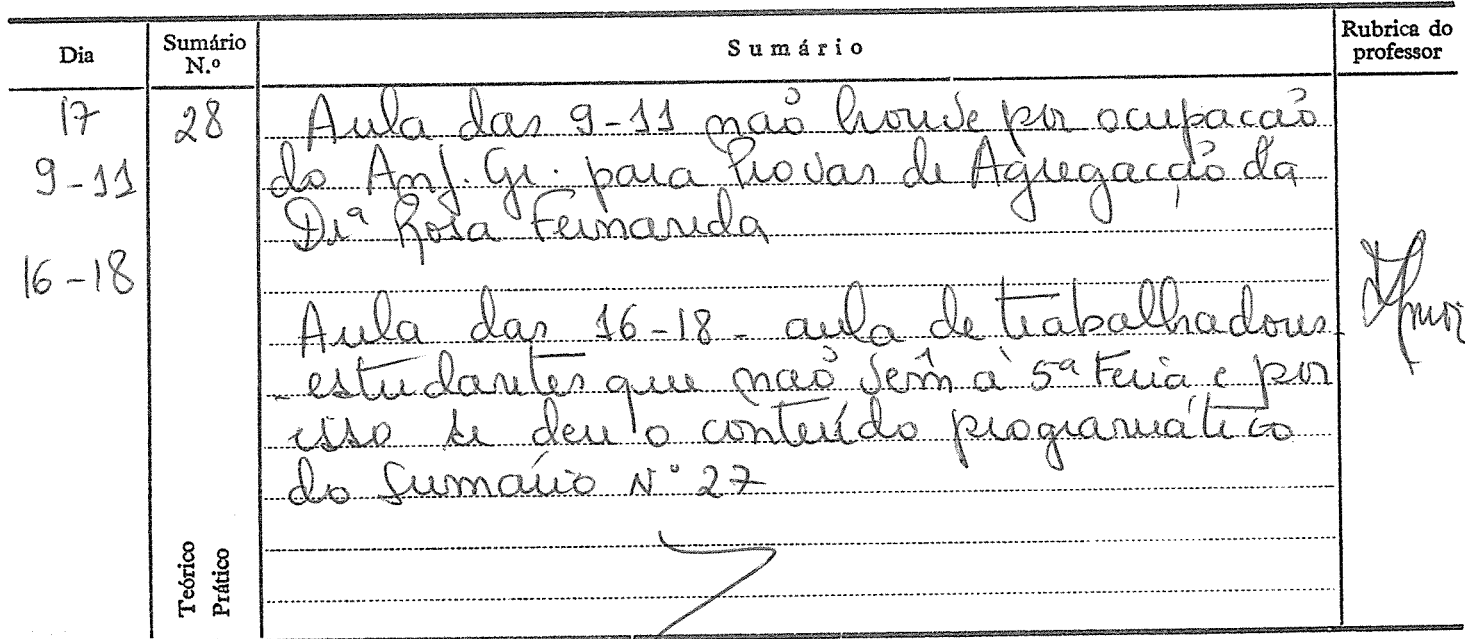 Dia Sumário N.º Sumário Rubrica do professor
17 28 Aula das 9-11 não houve por ocupacão
9-11 do Anf. Gr. para Provas de Agregacção da
Drª Rosa Fernanda
16-18
Aula das 16-18 - aula de trabalhadores
estudantes que não vêm à 5ª feira e por
isso se deu o conteúdo programático
do Sumário Nº 27
Teórico
Prático